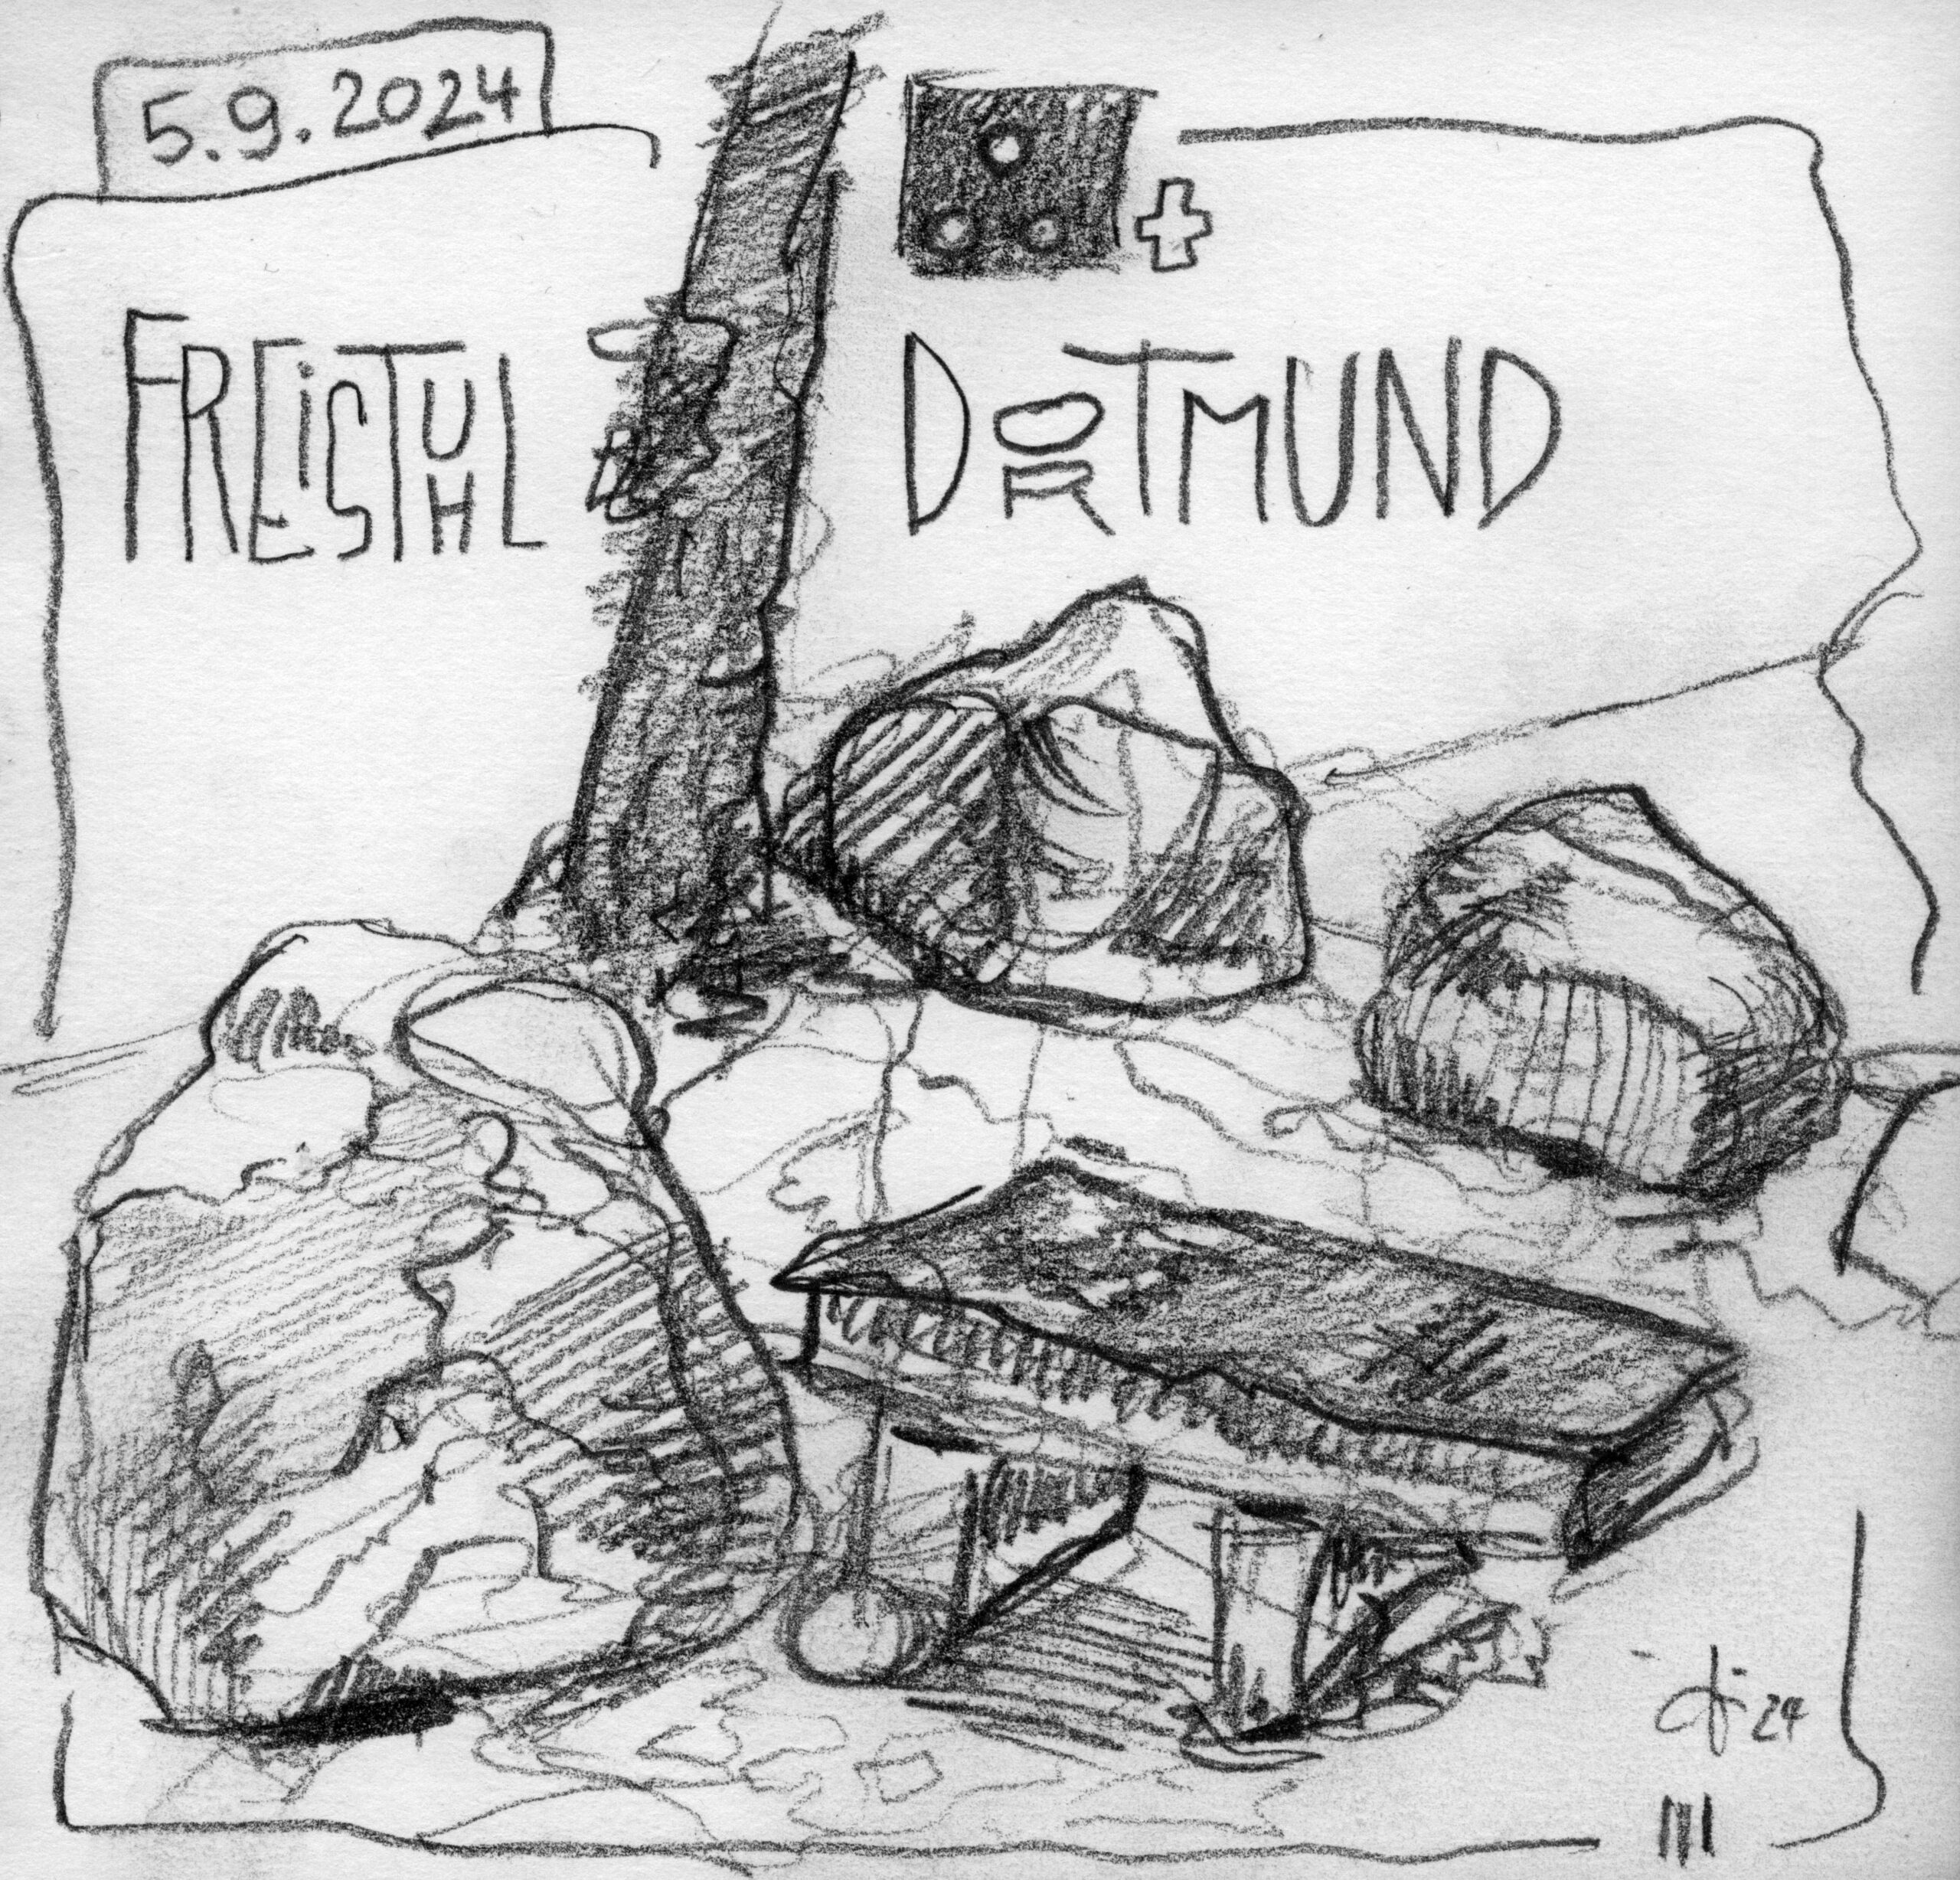 5.9.2024
FREiSTUHL DORTMUND
24